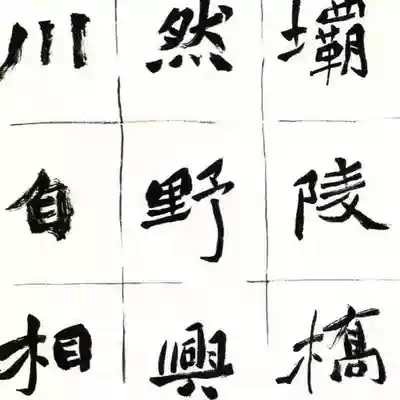 壩陵橋
然野興
川自相